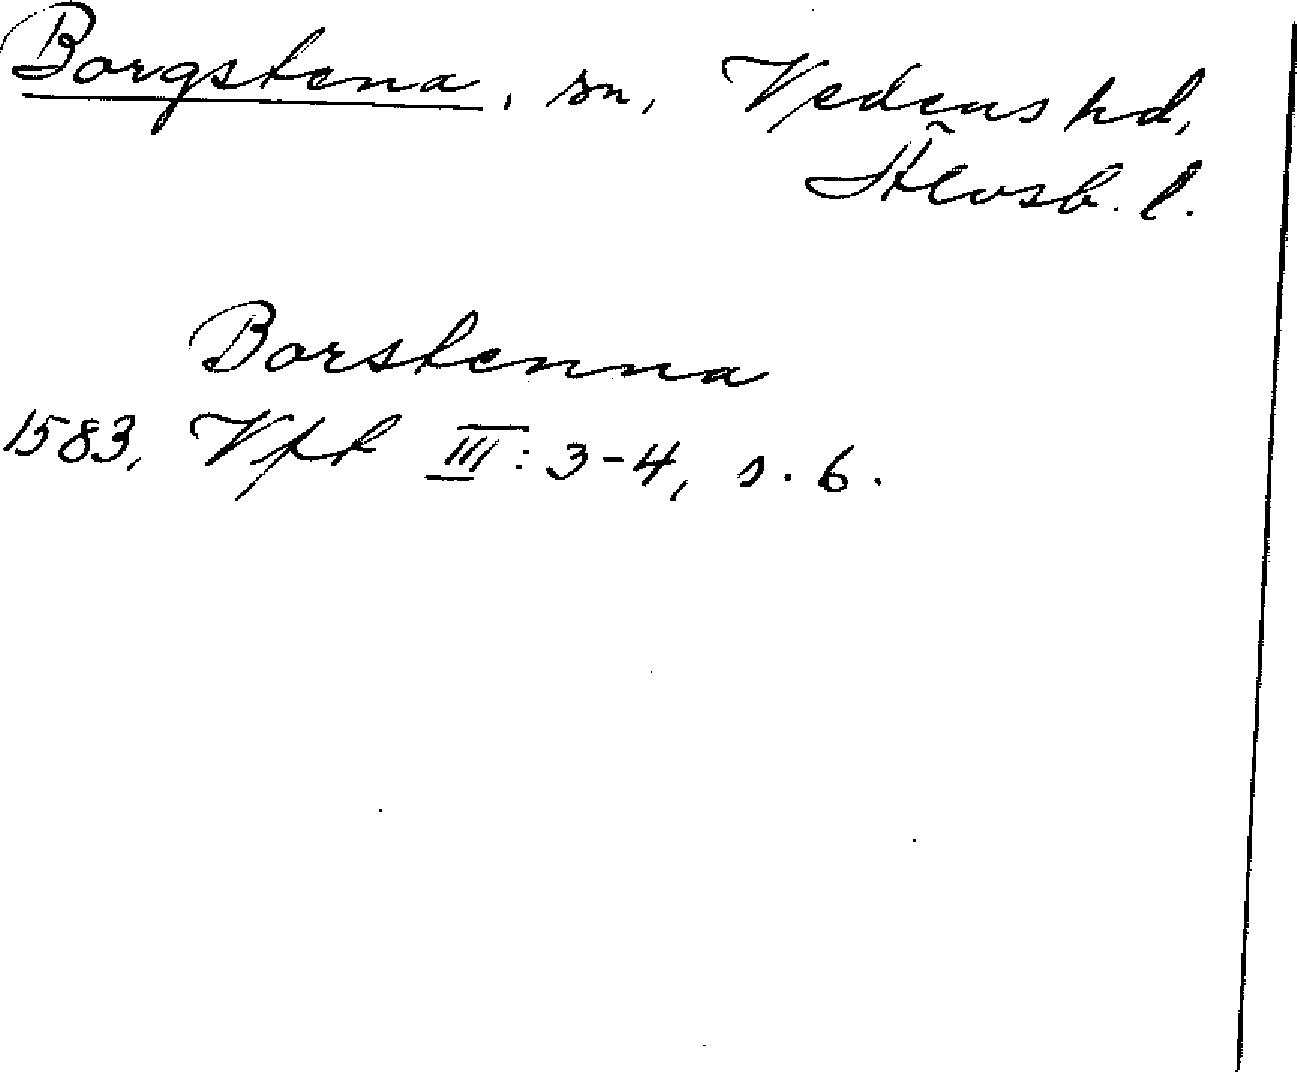 Borgstena, sn, Vedens hd,
Älvsb. l.
Borstenna
1583, Vfl III: 3-4, s. 6.